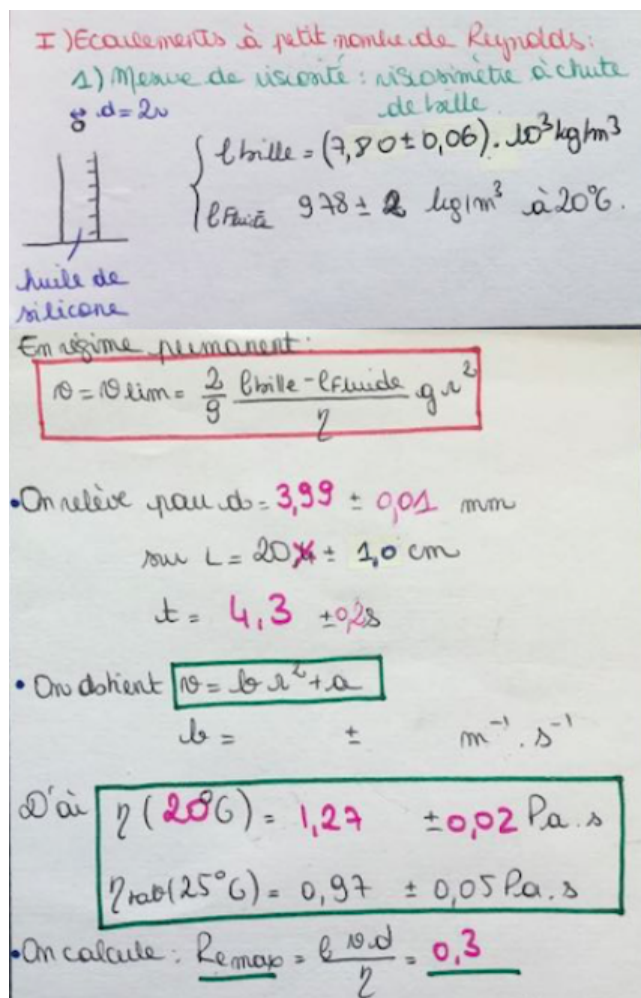 I) Ecoulements à petit nombre de Reynolds:
1) Mesure de viscosité : viscosimètre à chute
de bille
d=2r
ρbille = (7,80 ± 0,06). 10³ kg/m³
ρFluide 978 ± 2 kg/m³ à 20°C.
huile de
silicone
En régime permanent:
v = vlim = 2/9 (ρbille - ρFluide)/η g r²
• On relève pour d = 3,99 ± 0,01 mm
sur L = 20 ± 1,0 cm
t = 4,3 ± 0,2s
• On obtient v = b r² + a
b = ± m⁻¹. s⁻¹
D'où η (20°C) = 1,27 ± 0,02 Pa.s
ηtab (25°C) = 0,97 ± 0,05 Pa.s
• On calcule : Remax = ρ v.d/η = 0,3